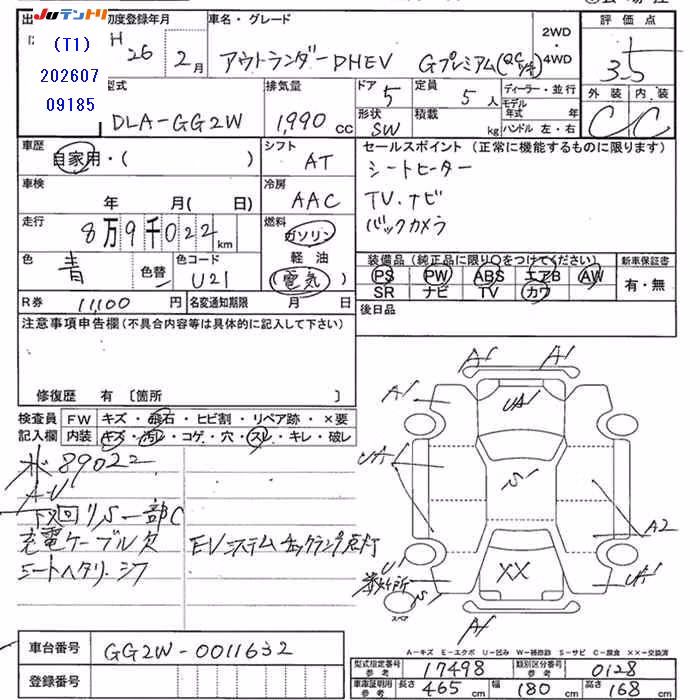 JUテントリ 初度登録年月 車名・グレード 評価点
(T1) H 26 2月 アウトランダーPHEV Gプレミアム 2WD 4WD 3.5
202607
09185
型式 排気量 ドア 定員 ディーラー・並行 外装 内装
DLA-GG2W 1,990cc 5 5人 モデル年式 年 C C
形状 積載 ハンドル 左・右
SW kg
車歴 シフト セールスポイント (正常に機能するものに限ります)
自家用・( ) AT シートヒーター
車検 冷房 TV.ナビ
年 月( 日) AAC バックカメラ
走行 燃料
8万9千022km ガソリン
色 色替 色コード 軽油 装備品 (純正品に限り○をつけてください) 新車保証書
青 U21 (電気) PS PW ABS エアB AW 有・無
SR ナビ TV カワ
R券 11,100円 名変通知期限 月 日 後日品
注意事項申告欄(不具合内容等は具体的に記入して下さい)
修復歴 有 〔箇所 〕
検査員 FW キズ・飛石・ヒビ割・リペア跡・×要
記入欄 内装 キズ・汚レ・コゲ・穴・スレ・キレ・破レ
A1 A1
A1 UA1
UA1 S
A2
U1 XX UA1
S1
スペア
A1
89022
A・U
下廻リS一部C
充電ケーブル欠 EVシステムチェックランプ点灯
シートヘタリ.シワ
車台番号 GG2W-0011632
登録番号
A-キズ E-エクボ U-凹み W-補修跡 S-サビ C-腐食 ××-交換済
型式指定番号 参考 17498 類別区分番号 参考 0128
車庫証明用 参考 長さ 465cm 幅 180cm 高さ 168cm